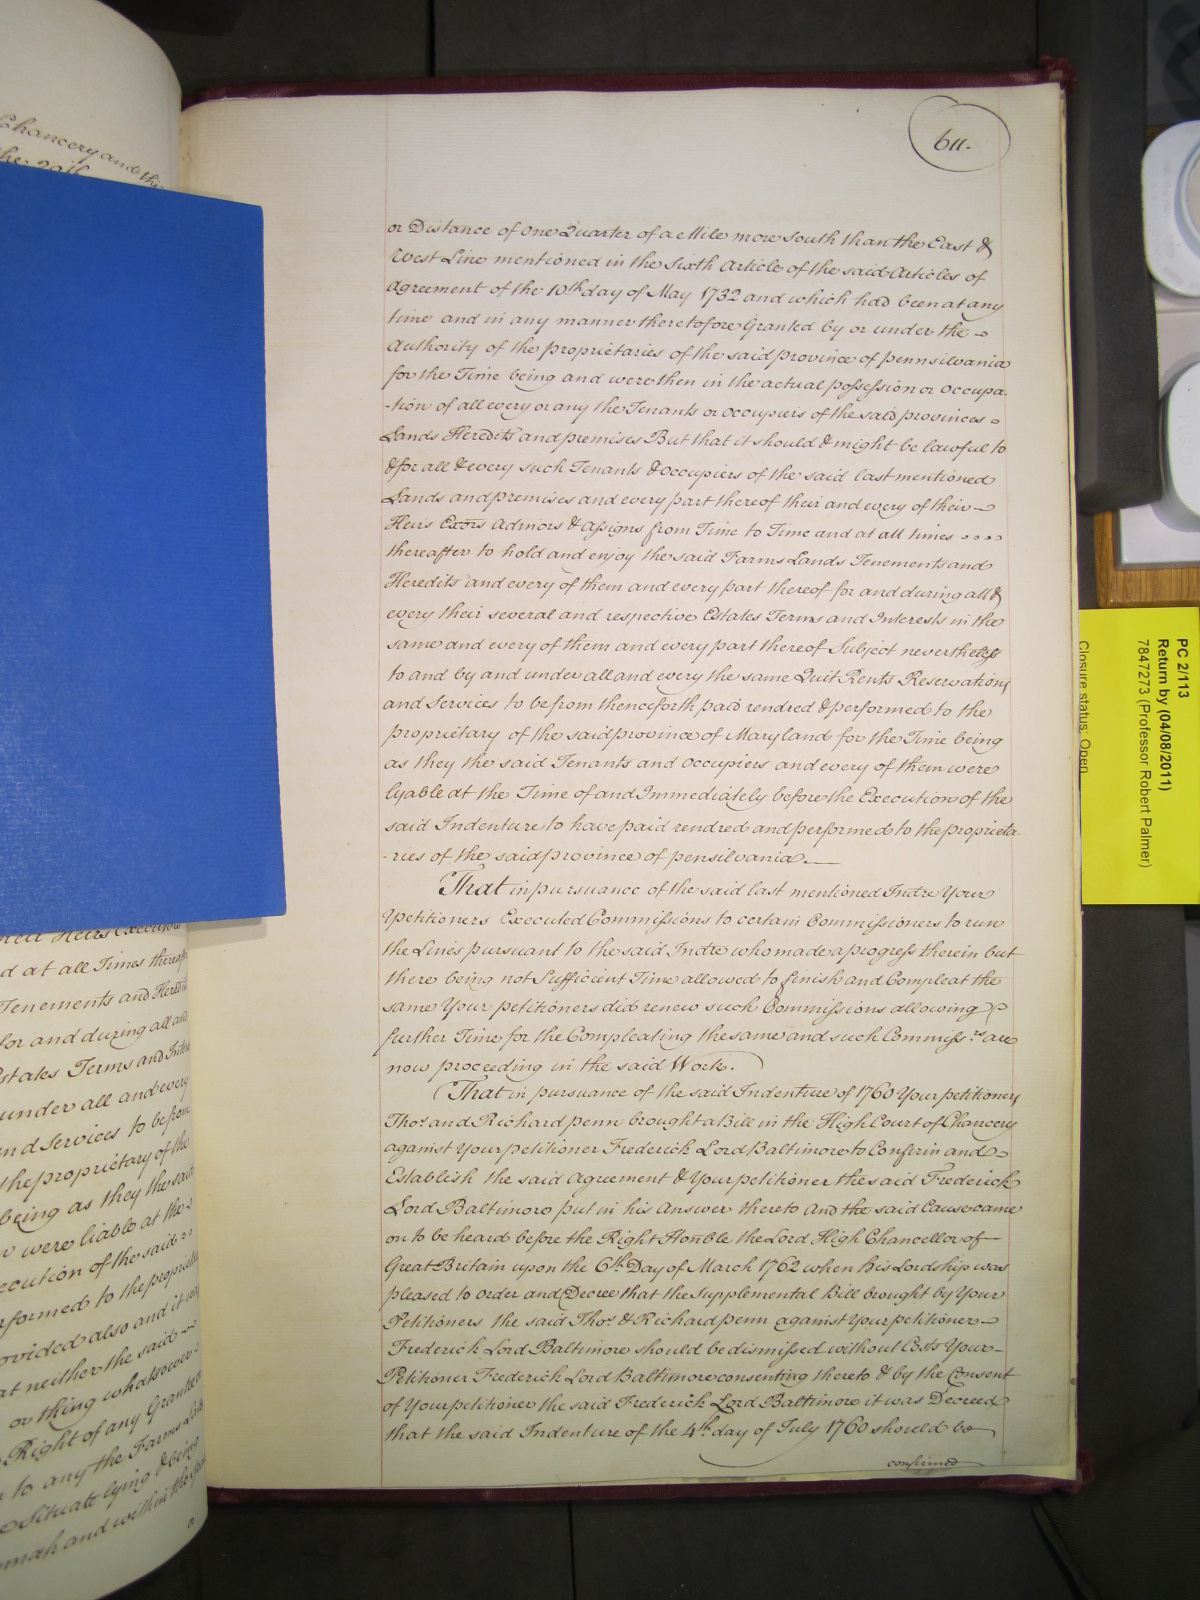 Chancery and the
611.
or Distance of one Quarter of a Mile more South than the East &
West Line mentioned in the Sixth Article of the said Articles of
Agreement of the 10th day of May 1732 and which had been at any
time and in any manner theretofore Granted by or under the
Authority of the proprietaries of the said province of pennsilvania
for the Time being and were then in the actual possession or Occupa-
-tion of all every or any the Tenants or occupiers of the said provinces
Lands Heredits and premises But that it should & might be lawful to
& for all & every such Tenants & Occupiers of the said last mentioned
Lands and premises and every part thereof their and every of their
Heirs Exors Admors & Assigns from Time to Time and at all times
thereafter to hold and enjoy the said Farms Lands Tenements and
Heredits and every of them and every part thereof for and during all &
every their several and respective Estates Terms and Interests in the
same and every of them and every part thereof Subject nevertheless
to and by and under all and every the same Quit Rents Reservations
and Services to be from thenceforth paid rendred & performed to the
proprietary of the said province of Maryland for the Time being
as they the said Tenants and Occupiers and every of them were
lyable at the Time of and Immediately before the Execution of the
said Indenture to have paid rendred and performed to the proprieta-
-ries of the said province of pensilvania.
That in pursuance of the said last mentioned Indre Your
Petitioners Executed Commissions to certain Commissioners to run
the Lines pursuant to the said Indre who made a progress therein but
there being not Sufficient Time allowed to finish and Compleat the
same Your petitioners did renew such Commissions allowing
further Time for the Compleating the same and such Commissrs. are
now proceeding in the said Work.
That in pursuance of the said Indenture of 1760 Your petitioners
Thos. and Richard penn brought a Bill in the High Court of Chancery
against Your petitioner Frederick Lord Baltimore to Confirm and
Establish the said Agreement & Your petitioner the said Frederick
Lord Baltimore put in his Answer thereto and the said Cause came
on to be heard before the Right Honble the Lord High Chancellor of
Great Britain upon the 6th Day of March 1762 when his Lordship was
pleased to Order and Decree that the Supplemental Bill brought by Your
Petitioners the said Thos. & Richard penn against Your petitioner
Frederick Lord Baltimore should be dismissed without Costs Your
Petitioner Frederick Lord Baltimore consenting thereto & by the Consent
of Your petitioner the said Frederick Lord Baltimore it was Decreed
that the said Indenture of the 4th day of July 1760 should be
confirmed
d at all Times
Tenements and
for and during all and
states Terms and
under all and every
nd Services to be from
the proprietary of the
being as they the said
were liable at the
ecution of the said
rformed to the
ovided also and it
at neither the said
or thing whatsoever
Right of any
to any the Farms
Situate lying & being
and within the
PC 2/113
Return by (04/08/2011)
7847273 (Professor Robert Palmer)
Closure status: Open